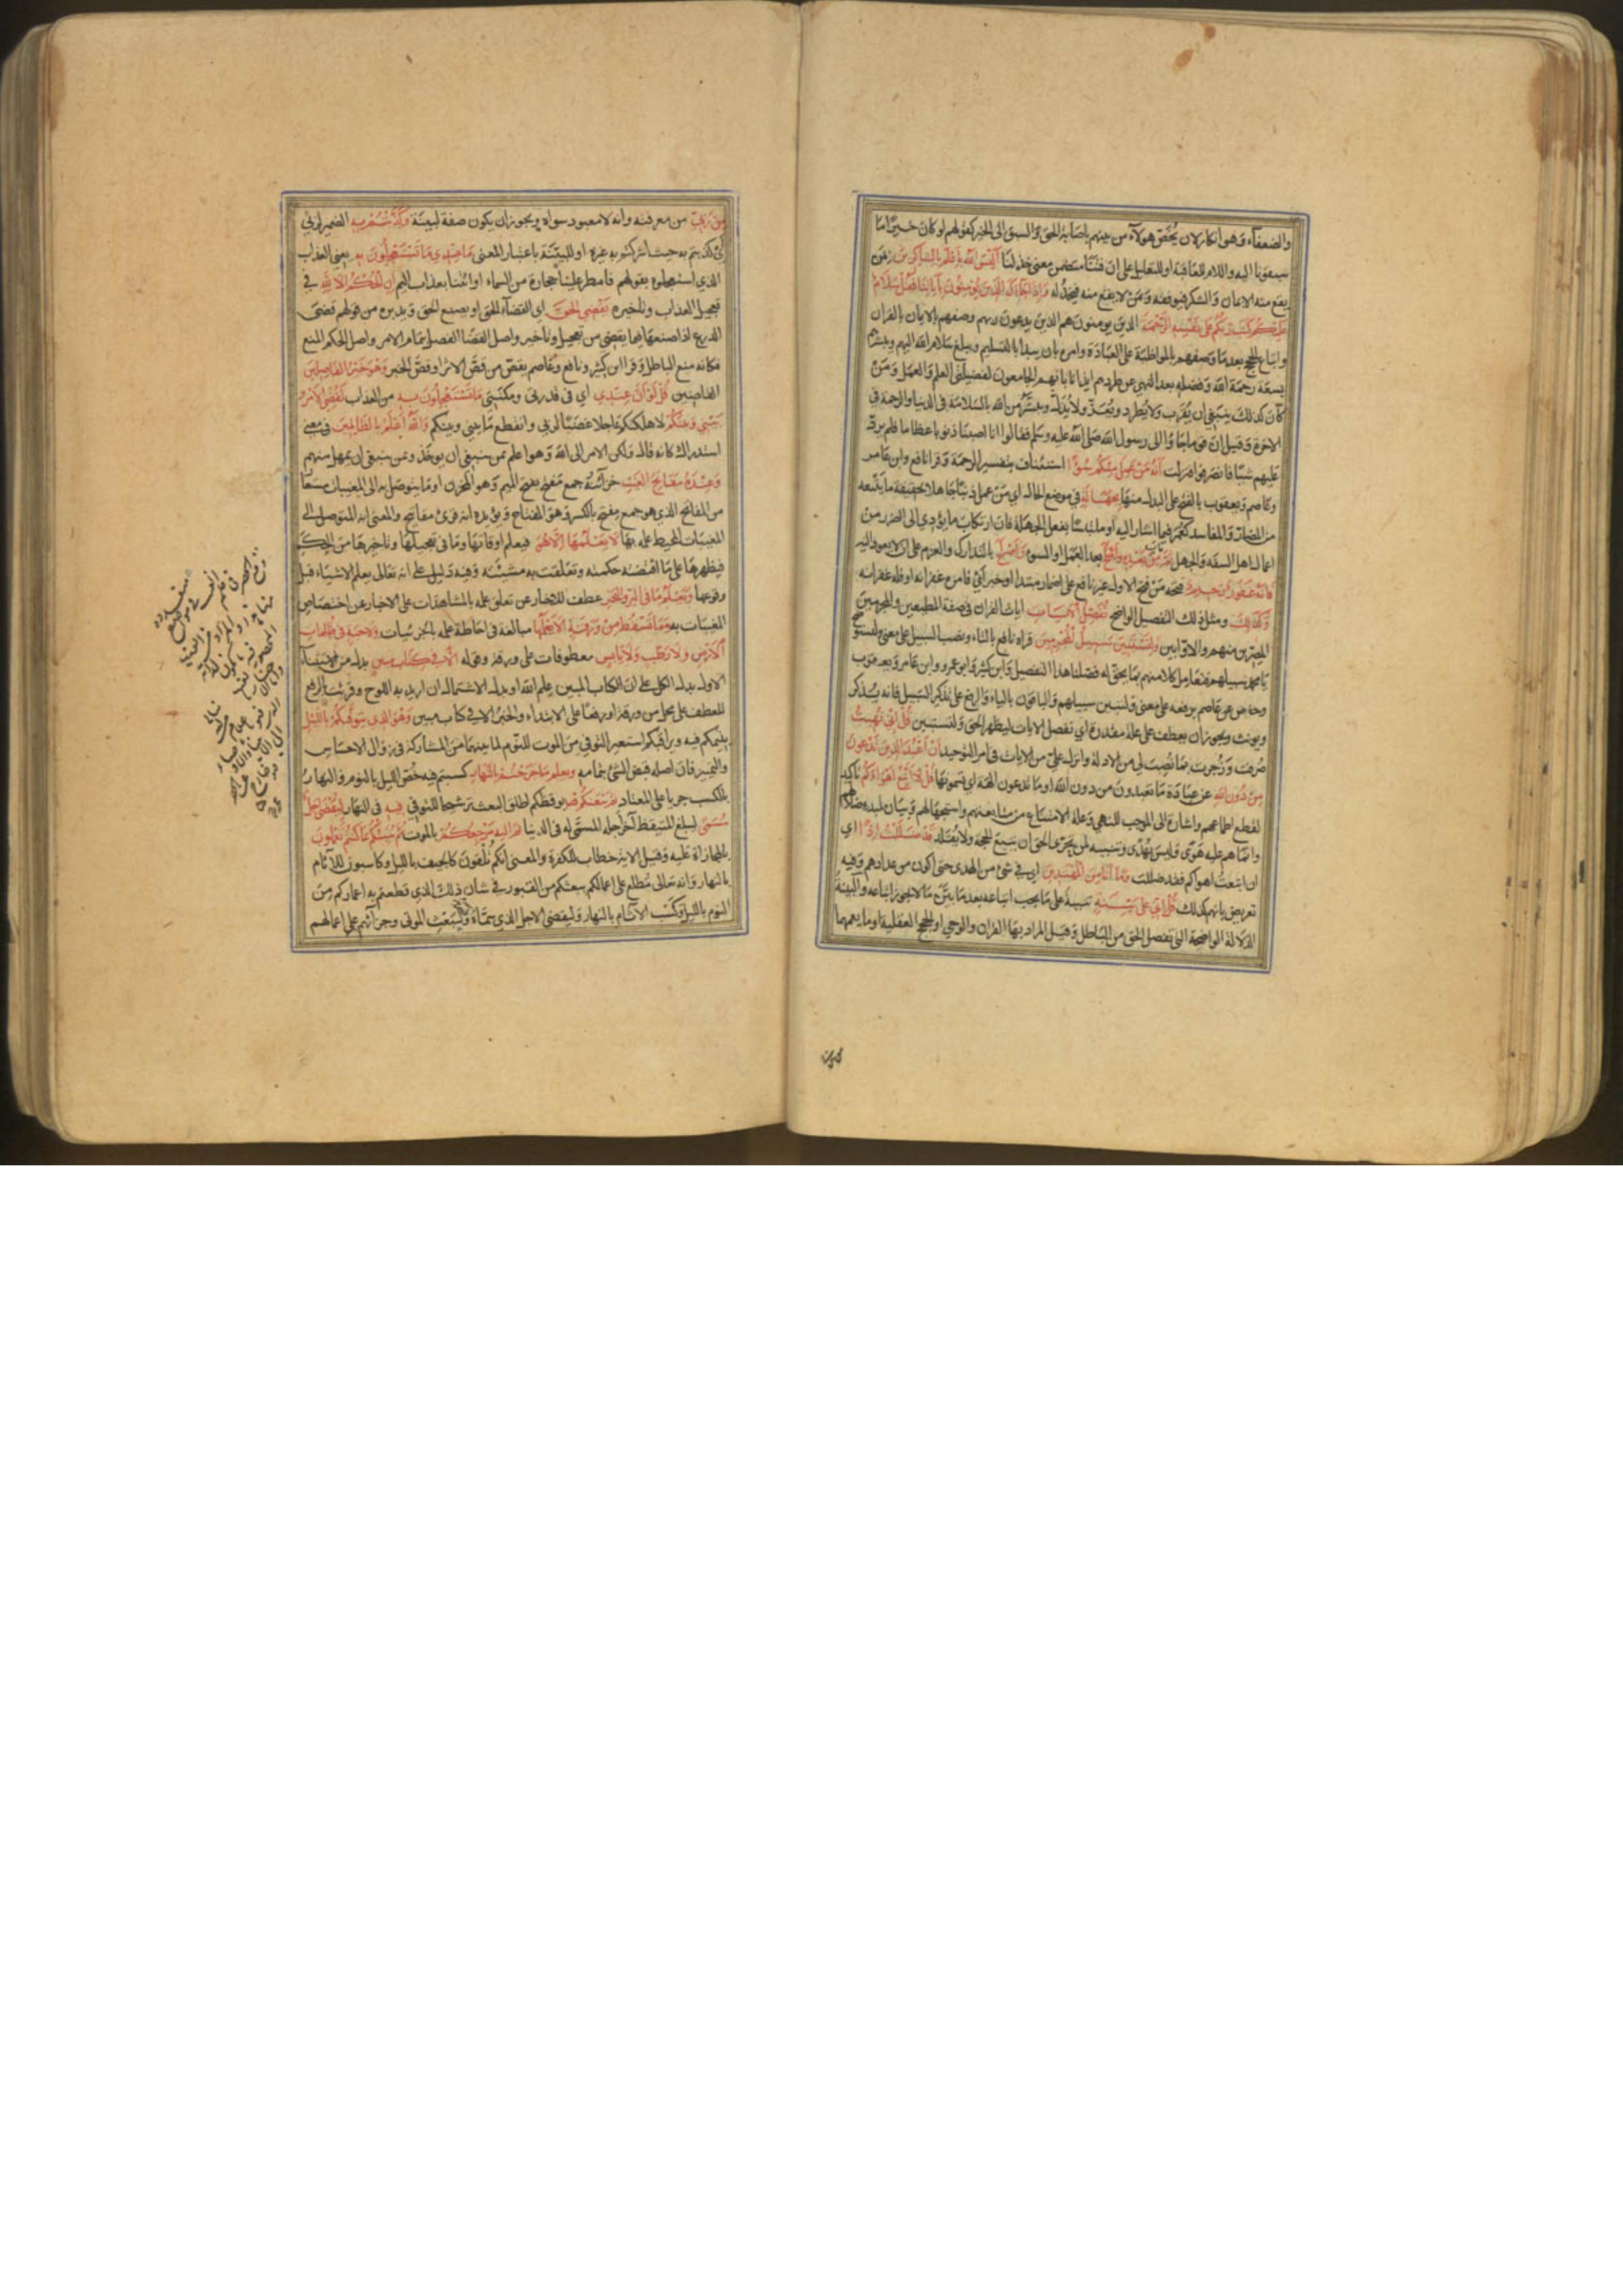 والضعفاء وهو انكار لان يخص هولاء من بينهم باصابة الحق والسبق الى الخير كقولهم لو كان خيرا ما
سبقونا اليه واللام للعاقبة او للتعليل على ان فتنا متضمن معنى خذلنا اليس الله باعلم بالشاكرين بمن
يقع منه الايمان والشكر فيوفقه ومن لا يقع منه فيخذله واذا جاءك الذين يؤمنون باياتنا فقل سلام
عليكم كتب ربكم على نفسه الرحمة الذين يومنون هم الذين يدعون ربهم وصفهم بالايمان بالقران
واتباع الحجج بعد ما وصفهم بالمواظبة على العبادة وامره بان يبدا بالتسليم ويبلغ سلام الله اليهم ويبشرهم
بسعة رحمة الله وفضله بعد النهي عن طردهم ايذانا بانهم الجامعون لفضيلتي العلم والعمل ومن
كان كذلك ينبغي ان يقرب ولا يطرد ويعز ولا يذل ويبشر من الله بالسلامة في الدنيا والرحمة في
الاخرة وقيل ان قوما جاؤا الى رسول الله صلى الله عليه وسلم فقالوا انا اصبنا ذنوبا عظاما فلم يرد
عليهم شيئا فانصرفوا فنزلت انه من عمل منكم سوءا استئناف بتفسير الرحمة وقرا نافع وابن عامر
وعاصم ويعقوب بالفتح على البدل منها بجهالة في موضع الحال اي من عمل ذنبا جاهلا بحقيقة ما يتبعه
من المضار والمفاسد كعمر فيما اشار اليه او ملتبسا بفعل الجهالة فان ارتكاب ما يؤدي الى الضرر من
افعال اهل السفه والجهل ثم تاب من بعده بعد العمل او السوء واصلح بالتدارك والعزم على ان لا يعود اليه
فانه غفور رحيم فتحه من فتح الاول غير نافع على اضمار مبتدا او خبر اي فامره غفرانه او فله غفرانه
وكذلك ومثل ذلك التفصيل الواضح نفصل الايات ايات القران في صفة المطيعين والمجرمين
المصرين منهم والاوابين ولتستبين سبيل المجرمين قراه نافع بالتاء ونصب السبيل على معنى ولتستوضح
يا محمد سبيلهم فتعامل كلا منهم بما يحق له فصلنا هذا التفصيل وابن كثير وابو عمرو وابن عامر ويعقوب
وحفص عن عاصم برفعه على معنى ولتبين سبيلهم والباقون بالياء والرفع على تذكير السبيل فانه يذكر
ويونث ويجوز ان يعطف على علة مقدرة اي نفصل الايات ليظهر الحق ولتستبين قل اني نهيت
صرفت وزجرت بما نصب لي من الادلة وانزل علي من الايات في امر التوحيد ان اعبد الذين تدعون
من دون الله عن عبادة ما تعبدون من دون الله او ما تدعون الهة اي تسمونها قل لا اتبع اهواءكم تاكيد
لقطع اطماعهم واشارة الى الموجب للنهي وعلة الامتناع من متابعتهم واستجهال لهم وبيان لمبدا ضلالهم
وان ما هم عليه هوى وليس بهدى وتنبيه لمن تحرى الحق ان يتبع الحجة ولا يقلد قد ضللت اذا اي
ان اتبعت اهواكم فقد ضللت وما انا من المهتدين اي في شئ من الهدى حتى اكون من عدادهم وفيه
تعريض بانهم كذلك قل اني على بينة تنبيه على ما يجب اتباعه بعد ما بين ما لا يجوز اتباعه والبينة
الدلالة الواضحة التي تفصل الحق من الباطل وقيل المراد بها القران والوحي او الحجج العقلية او ما يعمهما
من ربي من معرفته وانه لا معبود سواه ويجوز ان يكون صفة لبينة وكذبتم به الضمير لربي
اي كذبتم به حيث اشركتم به غيره او للبينة باعتبار المعنى ما عندي ما تستعجلون به يعني العذاب
الذي استعجلوه بقولهم فامطر علينا حجارة من السماء او ائتنا بعذاب اليم ان الحكم الا لله في
تعجيل العذاب وتاخيره يقضي الحق اي القضاء الحق او يصنع الحق ويدبره من قولهم قضى
الدرع اذا صنعها فيما يقضي من تعجيل وتاخير واصل القضا الفصل بتمام الامر واصل الحكم المنع
فكانه منع الباطل وقرا ابن كثير ونافع وعاصم يقص من قص الاثر او قص الخبر وهو خير الفاصلين
القاضين قل لو ان عندي اي في قدرتي ومكنتي ما تستعجلون به من العذاب لقضي الامر
بيني وبينكم لاهلكتكم عاجلا غضبا لربي وانقطع ما بيني وبينكم والله اعلم بالظالمين في معنى
استدراك كانه قال ولكن الامر الى الله وهو اعلم بمن ينبغي ان يوخذ وبمن ينبغي ان يمهل منهم
وعنده مفاتح الغيب خزائنه جمع مفتح بفتح الميم وهو المخزن او ما يتوصل به الى المغيبات مستعار
من المفاتح الذي هو جمع مفتح بالكسر وهو المفتاح ويؤيده انه قرئ مفاتيح والمعنى انه المتوصل الى
المغيبات المحيط علمه بها لا يعلمها الا هو فيعلم اوقاتها وما في تعجيلها وتاخيرها من الحكم
فيظهرها على ما اقتضته حكمته وتعلقت به مشيئته وفيه دليل على انه تعالى يعلم الاشياء قبل
وقوعها ويعلم ما في البر والبحر عطف للاخبار عن تعلق علمه بالمشاهدات على الاخبار عن اختصاص
المغيبات به وما تسقط من ورقة الا يعلمها مبالغة في احاطة علمه بالجزئيات ولا حبة في ظلمات
الارض ولا رطب ولا يابس معطوفات على ورقة وقوله الا في كتاب مبين بدل من الاستثناء
الاول بدل الكل على ان الكتاب المبين علم الله او بدل الاشتمال ان اريد به اللوح وقرئت بالرفع
للعطف على محل من ورقة او رفعا على الابتداء والخبر الا في كتاب مبين وهو الذي يتوفيكم بالليل
ينيمكم فيه ويراقبكم استعير التوفي من الموت للنوم لما بينهما من المشاركة في زوال الاحساس
والتمييز فان اصله قبض الشئ بتمامه ويعلم ما جرحتم بالنهار كسبتم فيه خص الليل بالنوم والنهار
بالكسب جريا على المعتاد ثم يبعثكم يوقظكم اطلق البعث ترشيحا للتوفي فيه في النهار ليقضى اجل
مسمى ليبلغ المتيقظ آخر اجله المسمى له في الدنيا ثم اليه مرجعكم بالموت ثم ينبئكم بما كنتم تعملون
بالمجازاة عليه وقيل الاية خطاب للكفرة والمعنى انكم تلقون كالجيف بالليل وكاسبون للآثام
بالنهار وانه تعالى مطلع على اعمالكم يبعثكم من القبور في شان ذلك الذي قطعتم به اعماركم من
النوم بالليل وكسب الآثام بالنهار وليقضى الاجل الذي سماه وليبعث الموتى وجزائهم على اعمالهم